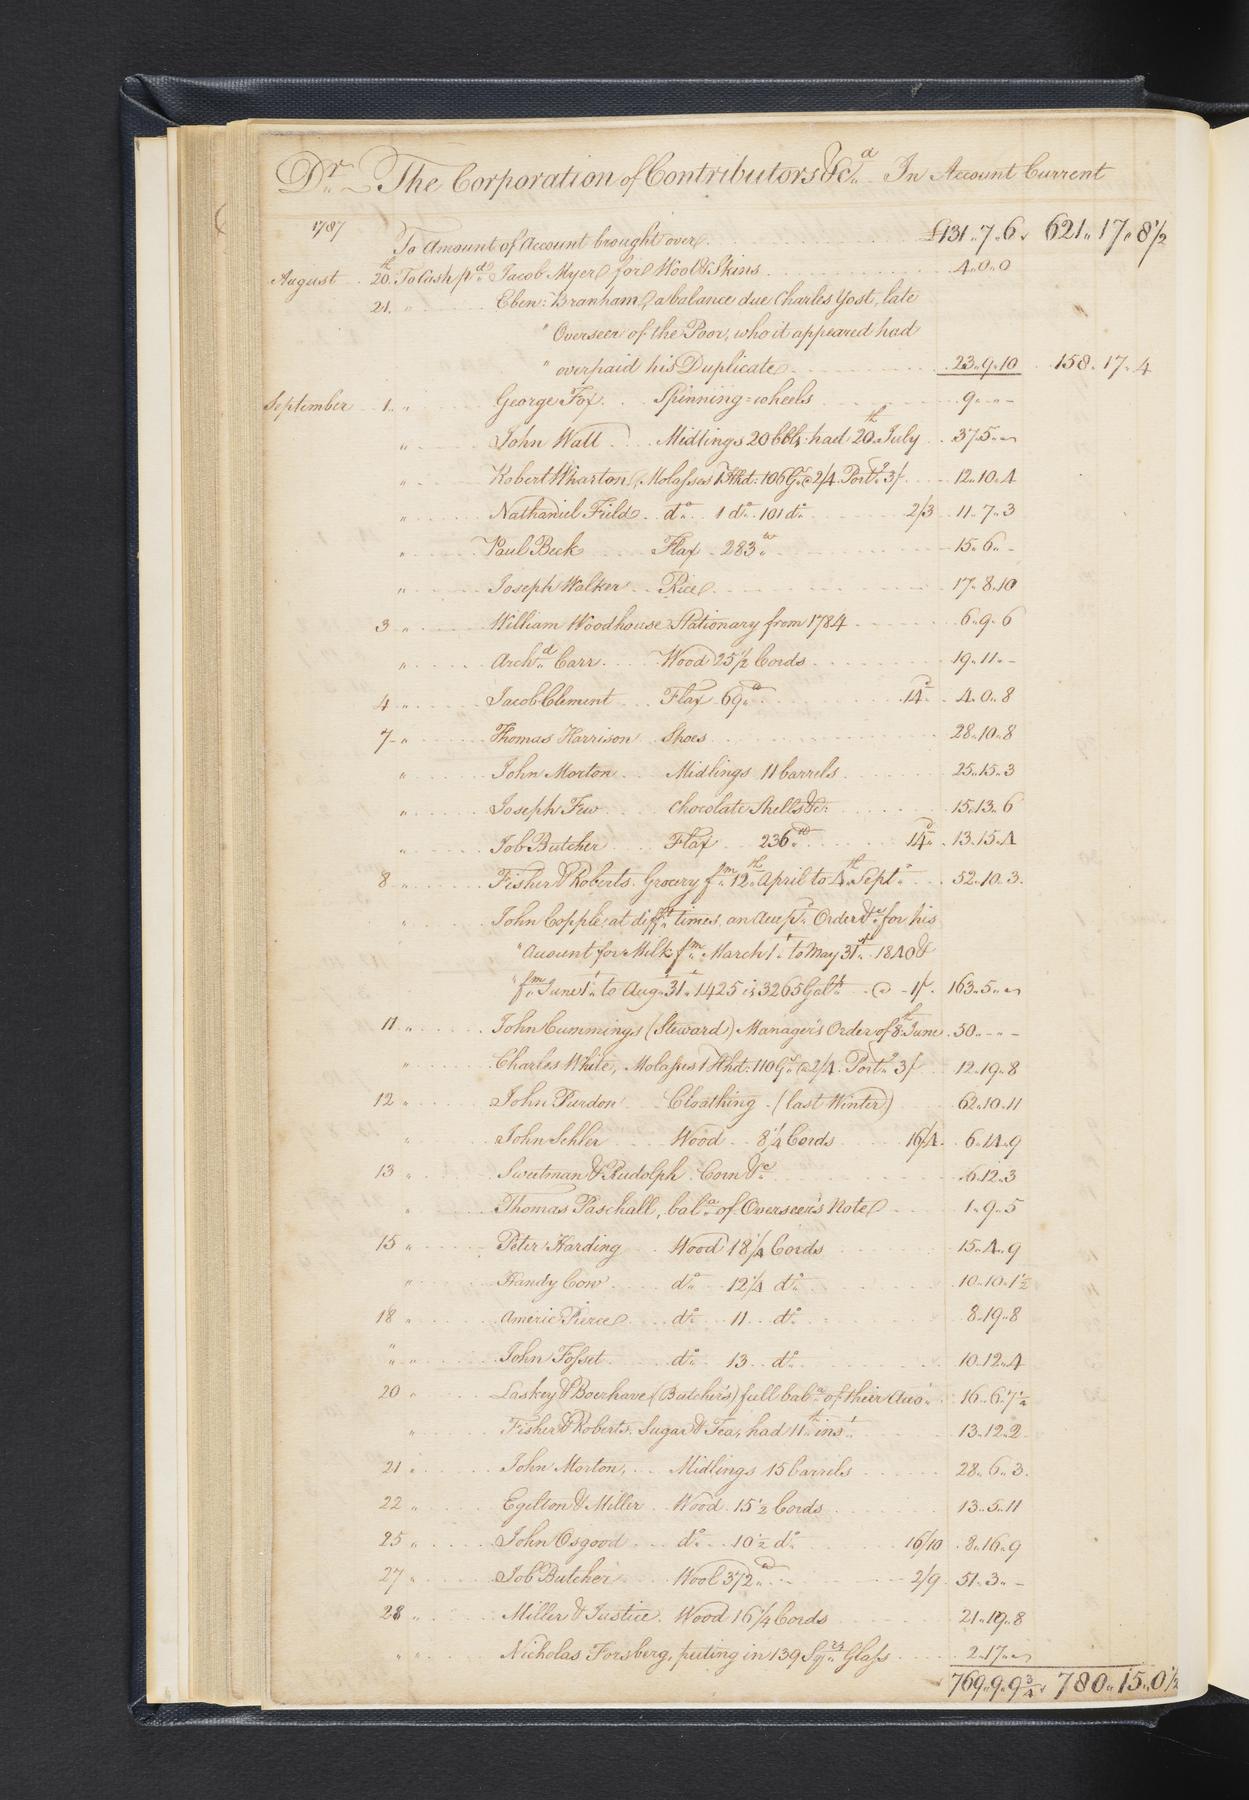 Dr. The Corporation of Contributors &ca. In Account Current
1787
To Amount of Account brought over £131..7..6 621..17..8 1/2
August 20th. To Cash pd. Jacob Myer for Wool & Skins 4..0..0
21. " Eben: Branham, a balance due Charles Yost, late
" Overseer of the Poor, who it appeared had
" overpaid his Duplicate 23..9..10 158..17..4
September 1. " George Fox Spinning=wheels 9..-..-
" John Wall Midlings 20 bbls. had 20th. July 37..5..-
" Robert Wharton, Molasses 1 Hhd: 106 Gs. @ 2/4 Porte. 3/ 12..10..4
" Nathaniel Field do. 1 do. 101 do. 2/3 11..7..3
" Paul Beck Flax 283 w. 15..6..-
" Joseph Walker Rice 17..8..10
3 " William Woodhouse Stationary from 1784 6..9..6
" Archd. Carr Wood 25 1/2 Cords 19..11..-
4 " Jacob Clement Flax 69 14d. 4..0..8
7 " Thomas Harrison Shoes 28..10..8
" John Morton Midlings 11 barrels 25..15..3
" Joseph Few Chocolate Shells &c. 15..13..6
" Job Butcher Flax 236 w. 14d. 13..15..4
8 " Fisher & Roberts. Grocery fm. 12th. April to 4th. Sept. 52..10..3
" John Copple, at difft. times, on Accepd. Order &c. for his
" Account for Milk fm. March 1t. to May 31st. 1840 &
" fm. June 1t. to Augt. 31. 1425 is 3265 Galls. @ 1/. 163..5..-
11 " John Cummings (Steward) Manager's Order of 8th June 30..-..-
" Charles White, Molasses 1 Hhd: 110 Gs. @ 2/4. Porte. 3/ 12..19..8
12 " John Purdon Cloathing (last Winter) 62..10..11
" John Sehler Wood 8 1/4 Cords 16/4 6..14..9
13 " Sweetman & Rudolph Corn &c. 6..12..3
" Thomas Paschall, bala. of Overseer's Note 1..9..5
15 " Peter Harding Wood 18 1/4 Cords 15..4..9
" Handy Cow do. 12 1/4 do. 10..10..1 1/2
18 " Americ Pierce do. 11 do. 8..19..8
" " John Fosset do. 13 do. 10..12..4
20 " Laskey & Boerhave (Butcher's) full bala. of their Acco. 16..6..7 1/4
" Fisher & Roberts. Sugar & Tea, had 11th inst. 13..12..2
21 " John Morton, Midlings 15 barrels 28..6..3
22 " Egelton & Miller Wood 15 1/2 Cords 13..5..11
25 " John Osgood do. 10 1/2 do. 16/10 8..16..9
27 " Job Butcher Wool 372 w. 2/9 51..3..-
28 " Miller & Justice. Wood 16 1/4 Cords 21..19..8
" " Nicholas Forsberg, puting in 139 Sqrs. Glass 2..17..-
769..9..9 3/4 780..15..0 1/2